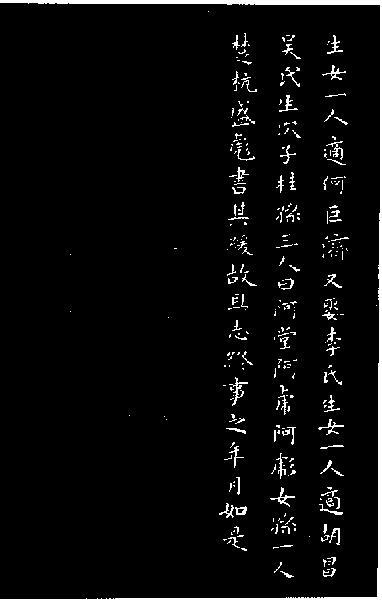 生女一人適何巨濟又娶李氏生女一人適胡昌
吳氏生次子桂孫三人曰阿堂阿虎阿彪女孫一人
楚杭盛彪書其𡻕故且志終事之年月如是